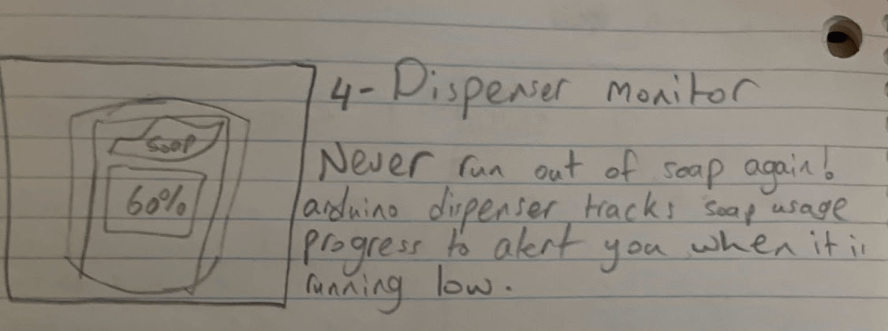 soap
60%
4- Dispenser monitor
Never run out of soap again!
arduino dispenser tracks soap usage
progress to alert you when it is
running low.